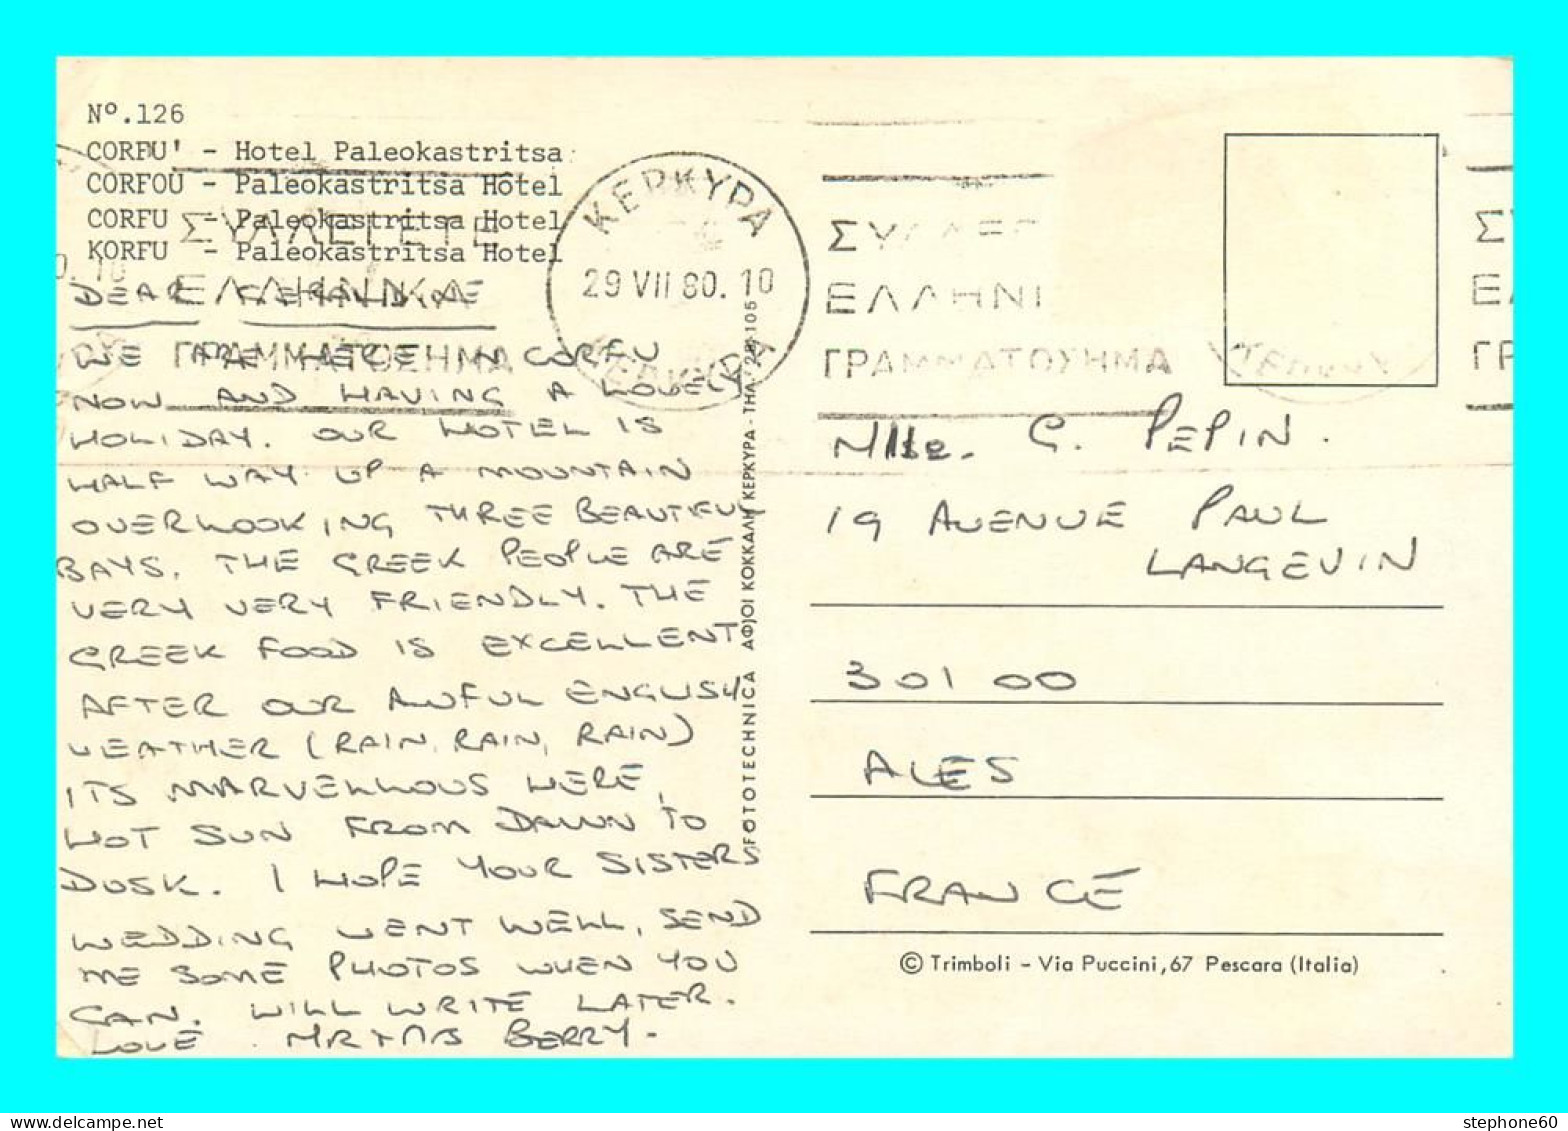 Nº.126
CORFU' - Hotel Paleokastritsa
CORFOU - Paleokastritsa Hôtel
CORFU - Paleokastritsa Hotel
KORFU - Paleokastritsa Hotel
ΣΥΛΛΕΓΕΤΕ
ΕΛΛΗΝΙΚΑ
ΓΡΑΜΜΑΤΟΣΗΜΑ
ΚΕΡΚΥΡΑ
29 VII 80.10
ΚΕΡΚΥΡΑ
ΣΥΛΛΕΓ
ΕΛΛΗΝΙ
ΓΡΑΜΜΑΤΟΣΗΜΑ
DEAR GERALDINE
WE ARE HERE IN CORFU
NOW AND HAVING A LOVELY
HOLIDAY. OUR HOTEL IS
HALF WAY UP A MOUNTAIN
OVERLOOKING THREE BEAUTIFUL
BAYS. THE GREEK PEOPLE ARE
VERY VERY FRIENDLY. THE
GREEK FOOD IS EXCELLENT
AFTER OUR AWFUL ENGLISH
WEATHER (RAIN, RAIN, RAIN)
ITS MARVELLOUS HERE,
HOT SUN FROM DAWN TO
DUSK. I HOPE YOUR SISTERS
WEDDING WENT WELL, SEND
ME SOME PHOTOS WHEN YOU
CAN. WILL WRITE LATER.
LOVE MR + MRS BERRY.
FOTOTECHNICA ΑΦΙΟΙ ΚΟΚΚΑΛΗ ΚΕΡΚΥΡΑ - ΤΗΛ. 28.105
Mlle. G. PEPIN.
19 AVENUE PAUL
LANGEVIN
30100
ALES
FRANCE
© Trimboli - Via Puccini, 67 Pescara (Italia)
stephone60